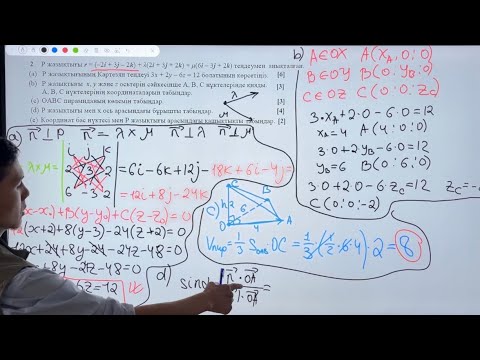 2. P жазықтығы r = (-2i + 3j - 2k) + λ(2i + 3j + 2k) + μ(6i - 3j + 2k) теңдеумен анықталған.
(a) P жазықтығының Картезли теңдеуі 3x + 2y - 6z = 12 болатынын көрсетіңіз. [6]
(b) P жазықтығы x, y және z осьтерін сәйкесінше A, B, C нүктелерінде қияды.
A, B, C нүктелерінің координаталарын табыңдар. [3]
(c) OABC пирамиданың көлемін табыңдар.
(d) P жазықтығы мен x осі арасындағы бұрышты табыңдар.
(e) Координат бас нүктесі мен P жазықтығы арасындағы қашықтықты табыңдар. [2]
a) n⊥P n = λ×μ n⊥λ n⊥μ
λ×μ =
i j k
2 3 2
6 -3 2
= 6i - 6k + 12j - 18k + 6i - 4j =
= 12i + 8j - 24k
(x-x₀) + B(y-y₀) + C(z-z₀) = 0
12(x+2) + 8(y-3) - 24(z+2) = 0
+24 + 8y - 24 - 24z - 48 = 0
+8y - 24z - 48 = 0
6z = 12
b) A∈OX A(x_A; 0; 0)
B∈OY B(0; y_B; 0)
C∈OZ C(0; 0; z_C)
3·x_A + 2·0 - 6·0 = 12
x_A = 4 A(4; 0; 0)
3·0 + 2y_B - 6·0 = 12
y_B = 6 B(0; 6; 0)
3·0 + 2·0 - 6·z_C = 12 z_C = -
C(0; 0; -2)
c)
C
B
O
A
2
6
4
V_пир = 1/3 S_осн OC = 1/3 · (1/2 · 6 · 4) · 2 = 8
d) sin n · OA =
· OA